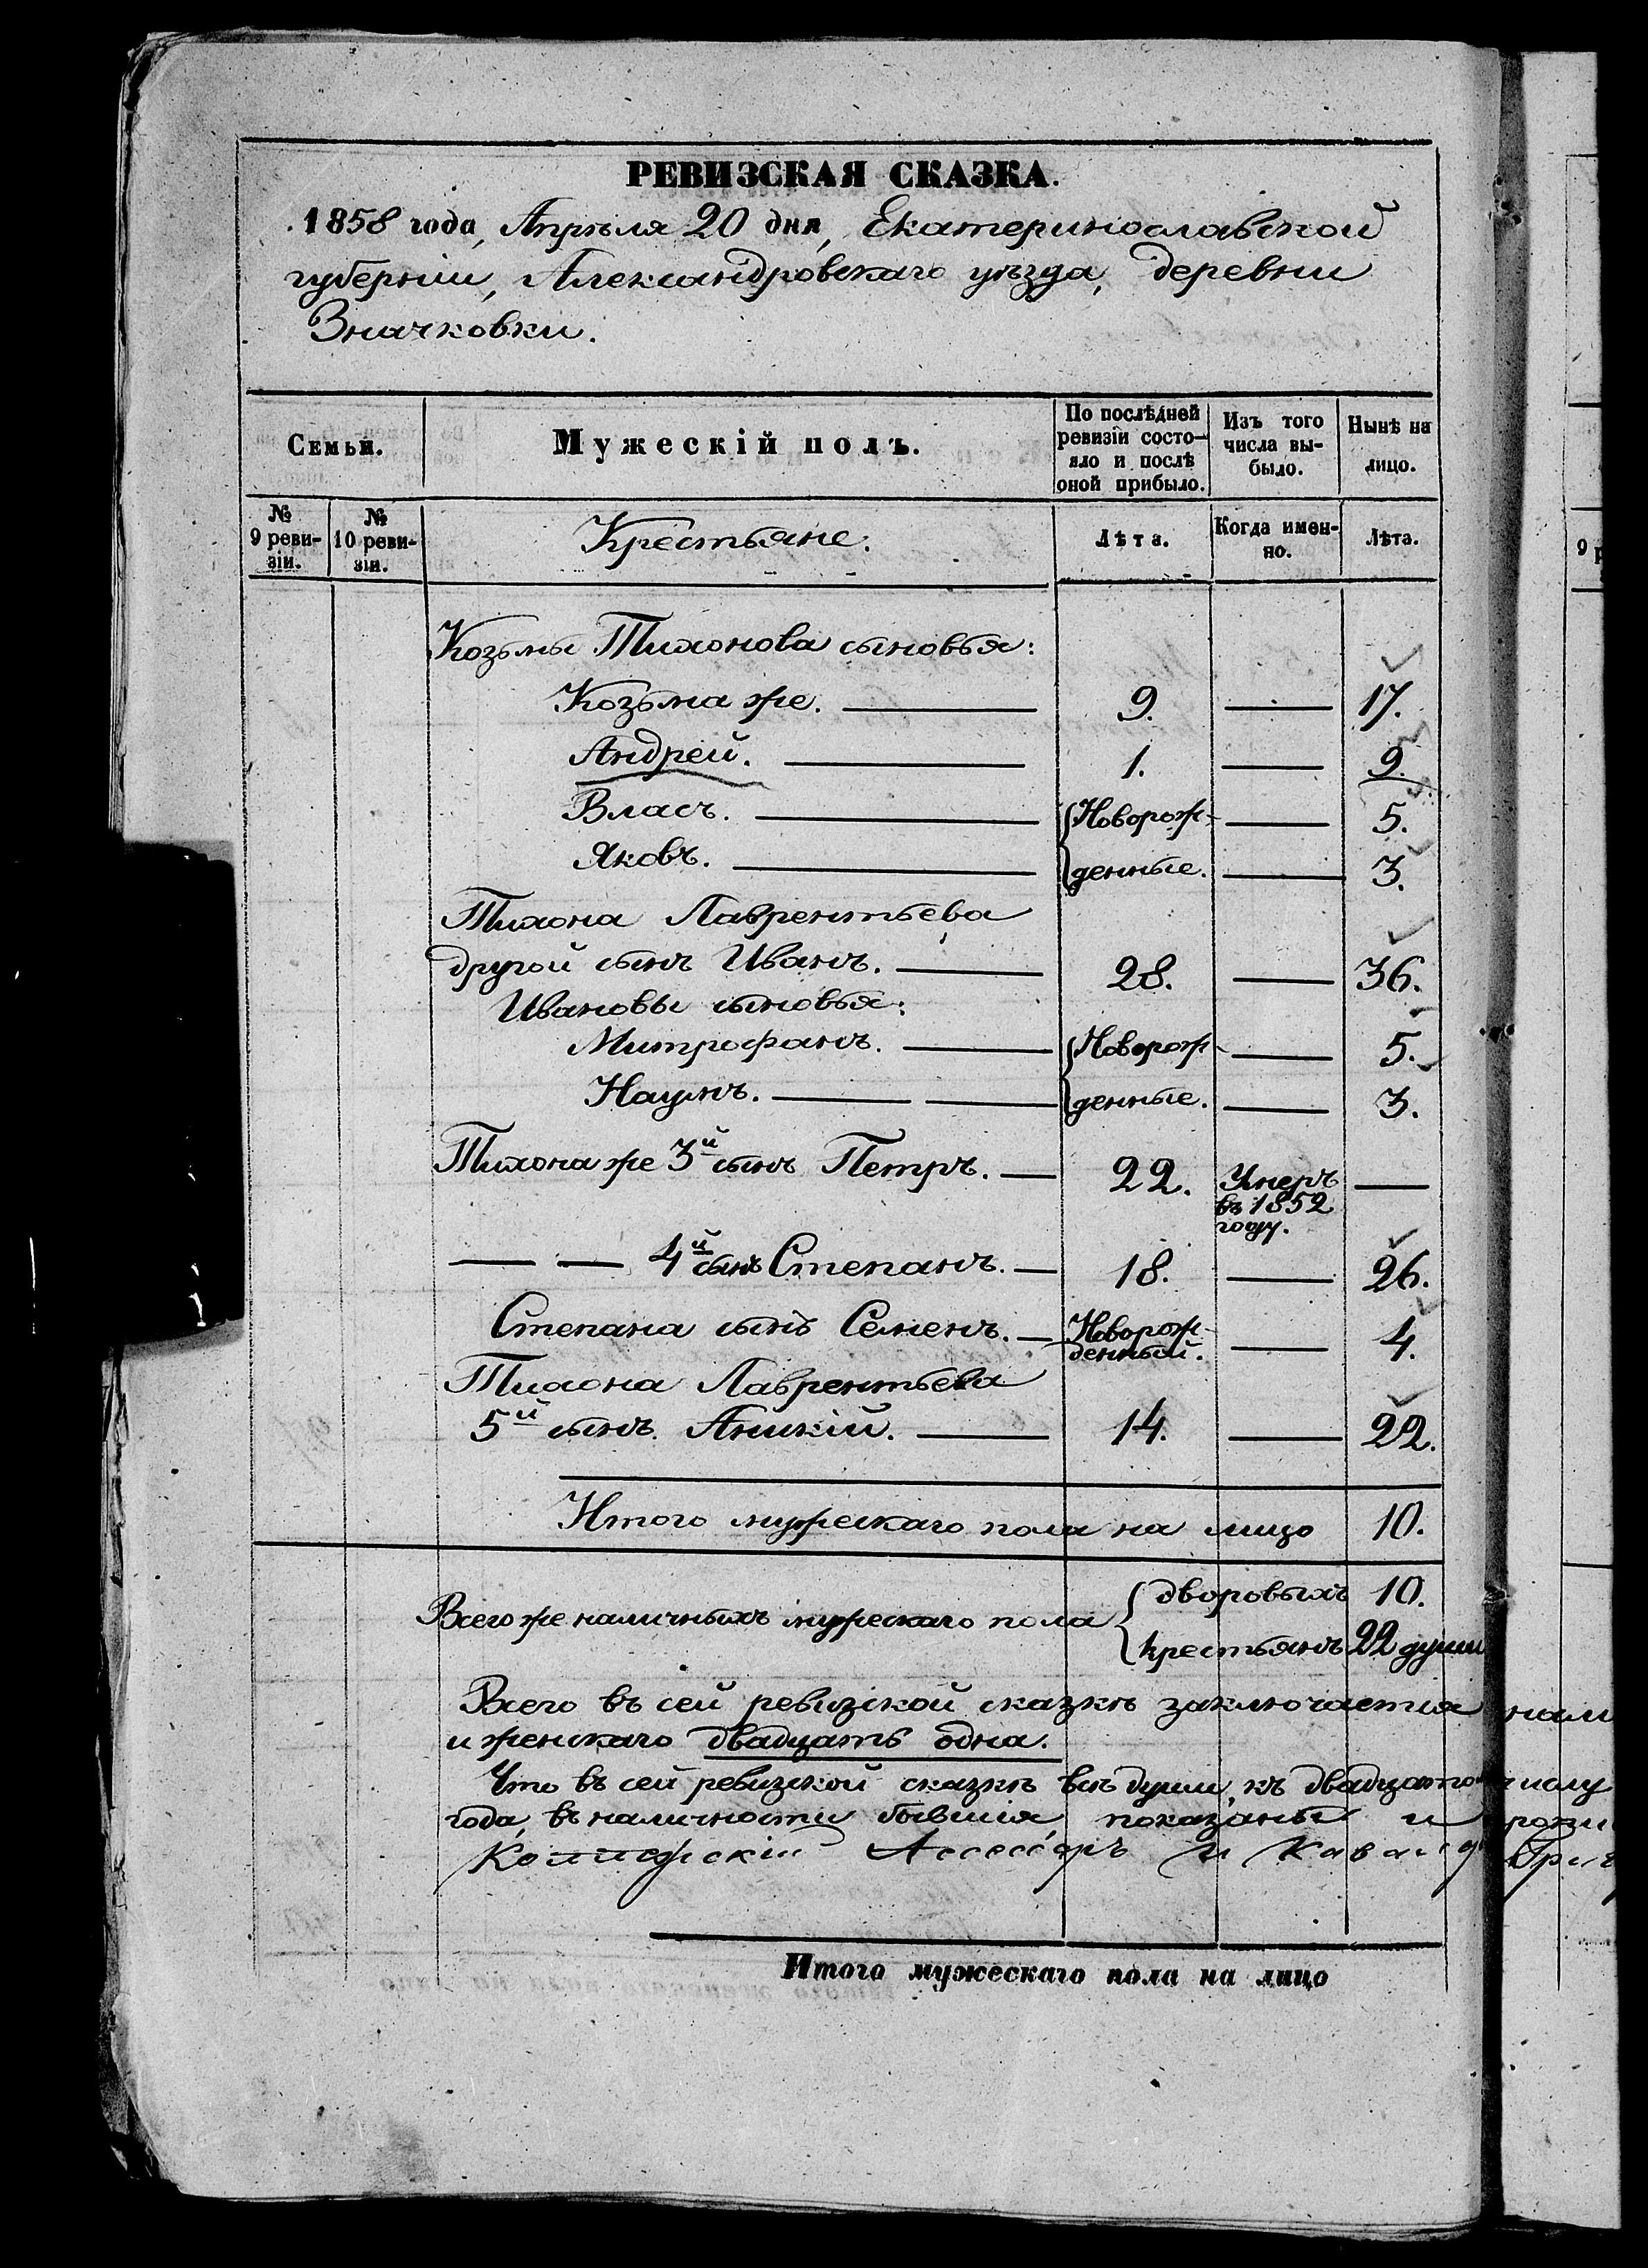 РЕВИЗСКАЯ СКАЗКА.
1858 года, Апрѣля 20 дня, Екатеринославской
губерніи, Александровскаго уѣзда, деревни
Значковки.
Семьи.
Мужескій полъ.
По послѣдней
ревизіи состо-
яло и послѣ
оной прибыло.
Изъ того
числа вы-
было.
Нынѣ на
лицо.
№
9 реви-
зіи.
№
10 реви-
зіи.
Крестьяне.
Лѣта.
Когда имен-
но.
Лѣта.
9
Козьмы Тихонова сыновья:
Козьма же. 9. 17.
Андрей. 1. 9.
Власъ. Новорож- 5.
Яковъ. денные. 3.
Тихона Лаврентьева
другой сынъ Иванъ. 28. 36.
Ивановы сыновья:
Митрофанъ. Новорож- 5.
Наумъ. денные. 3.
Тихона же 3й сынъ Петръ. 22. Умеръ
въ 1852
году.
4й сынъ Степанъ. 18. 26.
Степана сынъ Семенъ. Новорож- 4.
денный.
Тихона Лаврентьева
5й сынъ Аникій. 14. 22.
Итого мужескаго пола на лицо 10.
Всего же наличныхъ мужескаго пола дворовыхъ 10.
крестьянъ 22 души
Всего въ сей ревизской сказкѣ заключается нали
и женскаго двадцать одна.
Что въ сей ревизской сказкѣ всѣ души, къ двадцатому числу
года, въ наличности бывшія, показаны и
Коллежскій Ассесоръ и Кавал
Итого мужескаго пола на лицо